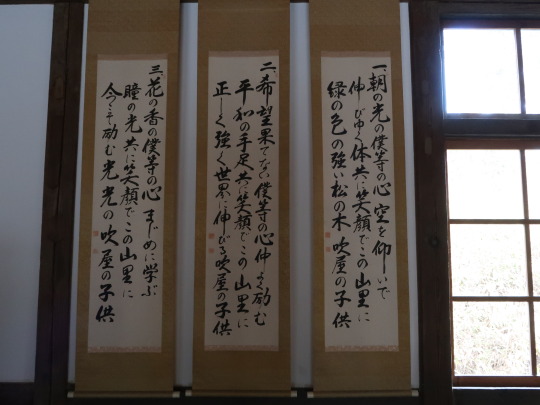 一、朝の光の僕等の心 空を仰いで
伸びゆく体 共に笑顔でこの山里に
緑の色の強い松の木 吹屋の子供
二、希望果てない僕等の心 仲よく励む
平和の手足 共に笑顔でこの山里に
正しく強く世界に伸びる 吹屋の子供
三、花の香の僕等の心 まじめに学ぶ
瞳の光 共に笑顔でこの山里に
今こそ励む 光光の 吹屋の子供